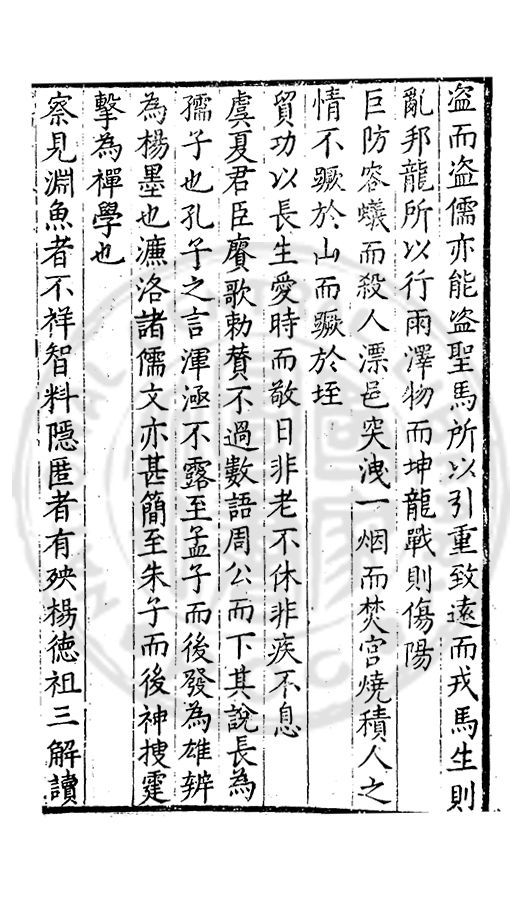 盗而盗儒亦能盗聖馬所以引重致遠而戎馬生則
亂邦龍所以行雨澤物而坤龍戰則傷陽
巨防容蟻而殺人漂邑突洩一烟而焚宫燒積人之
情不蹶於山而蹶於垤
貿功以長生愛時而敬日非老不休非疾不息
虞夏君臣賡歌勅賛不過數語周公而下其說長為
孺子也孔子之言渾涵不露至孟子而後發為雄辨
為楊墨也濂洛諸儒文亦甚簡至朱子而後神搜霆
擊為禪學也
察見淵魚者不祥智料隠匿者有殃楊徳祖三解讀